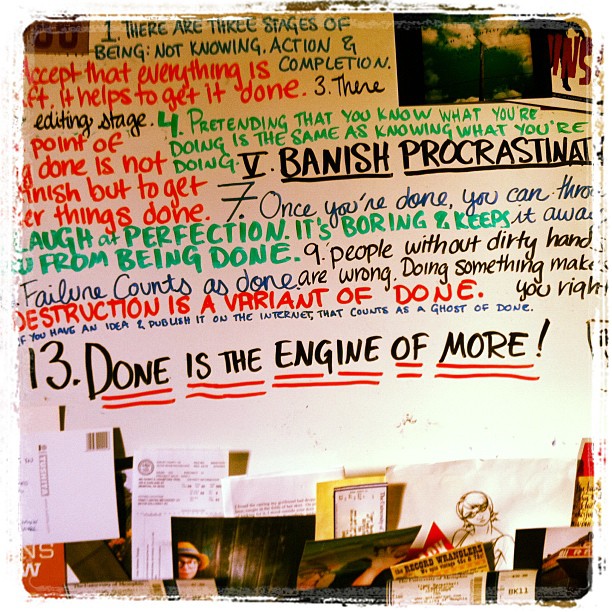 1. THERE ARE THREE STAGES OF
BEING: NOT KNOWING, ACTION &
COMPLETION.
Accept that everything is
ft. It helps to get it done. 3. There
editing stage. 4. PRETENDING THAT YOU KNOW WHAT YOU'RE
DOING IS THE SAME AS KNOWING WHAT YOU'RE
DOING. V. BANISH PROCRASTINAT
point of
g done is not
finish but to get
er things done. 7. Once you're done, you can throw
it away
LAUGH at PERFECTION. IT'S BORING & KEEPS
U FROM BEING DONE. 9. people without dirty hand
are wrong. Doing something make
you righ
Failure Counts as done.
DESTRUCTION IS A VARIANT OF DONE.
IF YOU HAVE AN IDEA & PUBLISH IT ON THE INTERNET, THAT COUNTS AS A GHOST OF DONE.
13. DONE IS THE ENGINE OF MORE!
the RECORD WRANGLERS
BK11